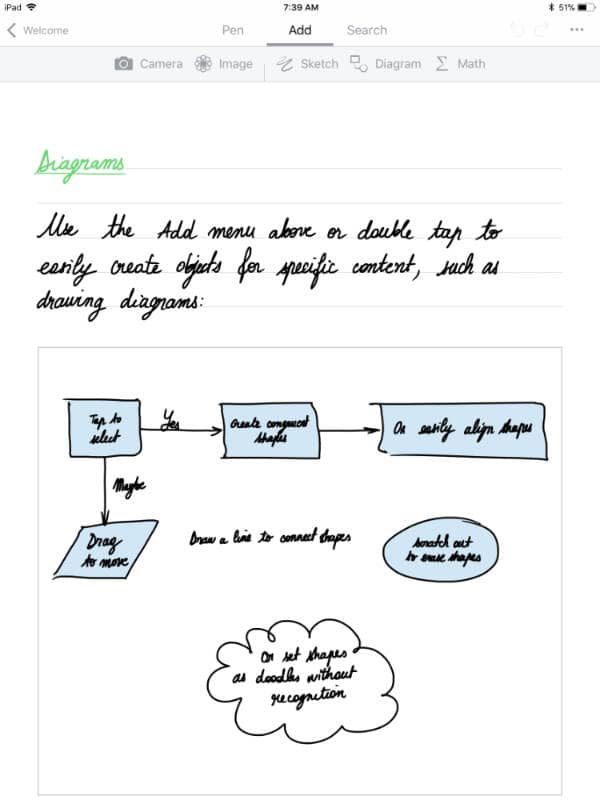 iPad 7:39 AM 51%
Welcome Pen Add Search
Camera Image Sketch Diagram Math
Diagrams
Use the Add menu above or double tap to
easily create objects for specific content, such as
drawing diagrams:
Tap to
select
Yes
Create congruent
shapes
Or easily align shapes
Maybe
Drag
to move
Draw a line to connect shapes
Scratch out
to erase shapes
Or set shapes
as doodles without
recognition